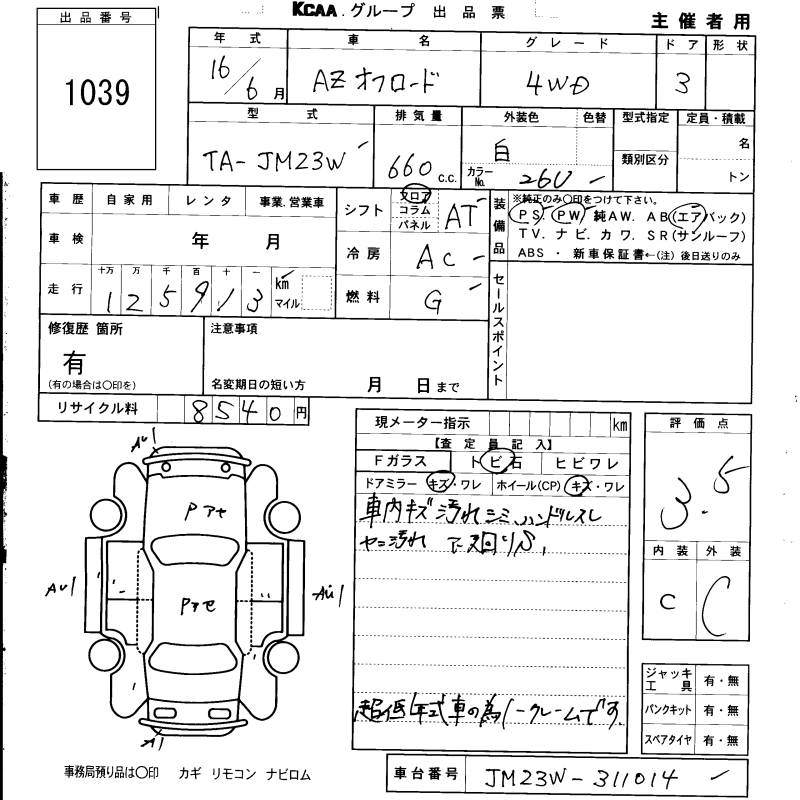 KCAA グループ 出品票
主催者用
出品番号
1039
年式 車名 グレード ドア 形状
16/6月 AZオフロード 4WD 3
型式 排気量 外装色 色替 型式指定 定員・積載
TA-JM23W 660 c.c. 白 名
カラーNo. 26U 類別区分 トン
車歴 自家用 レンタ 事業.営業車
シフト フロア コラム パネル AT
装備品 ※純正のみ〇印をつけて下さい。
PS. PW 純AW. AB(エアバック)
TV. ナビ. カワ. SR(サンルーフ)
ABS ・ 新車保証書←(注) 後日送りのみ
車検 年 月
冷房 AC
走行 十万 万 千 百 十 一
125913 km マイル
燃料 G
セールスポイント
修復歴 箇所
有
(有の場合は〇印を)
注意事項
名変期日の短い方 月 日まで
リサイクル料 8540円
現メーター指示 km
【査定員記入】
Fガラス トビ石 ヒビワレ
ドアミラー キズ・ワレ ホイール(CP) キズ・ワレ
車内キズ汚れシミ ハンドルスレ
ヤニ汚れ
超低年式車の為ノークレームです.
評価点
3.5
内装 外装
C C
ジャッキ工具 有・無
パンクキット 有・無
スペアタイヤ 有・無
AU1
Pアセ
AU1 Pアセ AU1
A1
事務局預り品は〇印 カギ リモコン ナビロム
車台番号 JM23W-311014